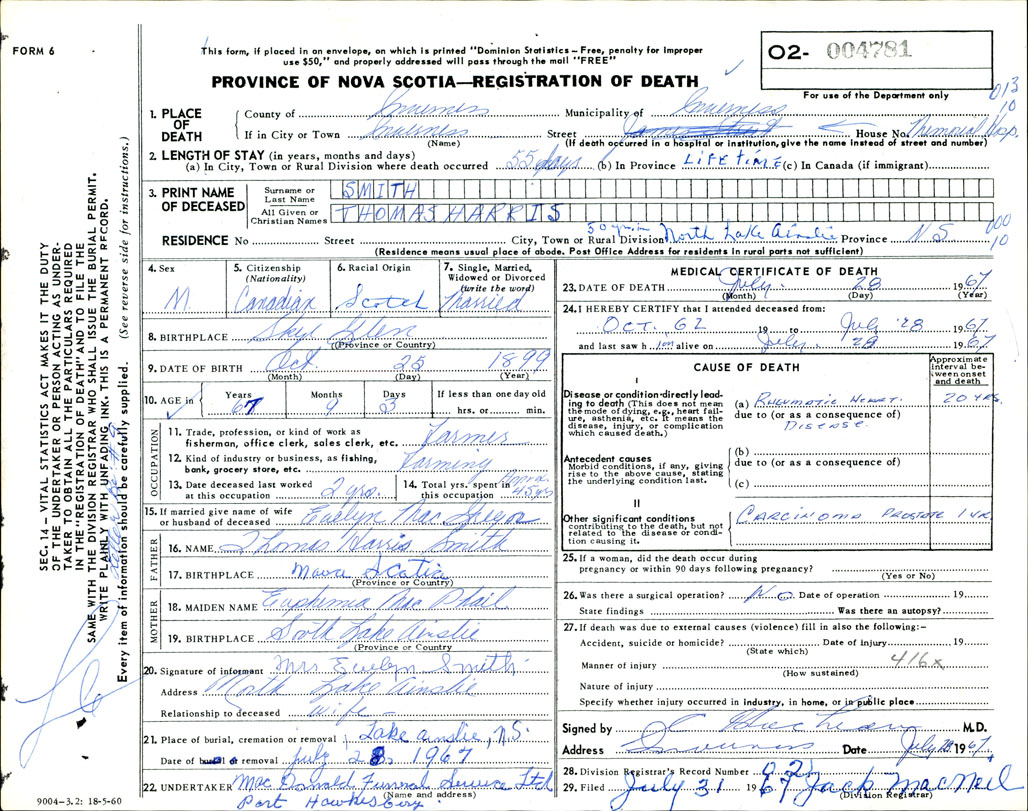 FORM 6
This form, if placed in an envelope, on which is printed "Dominion Statistics – Free, penalty for improper
use $50," and properly addressed will pass through the mail "FREE"
PROVINCE OF NOVA SCOTIA—REGISTRATION OF DEATH
O2- 004781
For use of the Department only
013
10
1. PLACE OF DEATH
County of Inverness Municipality of Inverness
If in City or Town Inverness Street House No. Memorial Hosp.
(Name) (If death occurred in a hospital or institution, give the name instead of street and number)
2. LENGTH OF STAY (in years, months and days)
(a) In City, Town or Rural Division where death occurred 55 days (b) In Province LIFETIME (c) In Canada (if immigrant)
3. PRINT NAME OF DECEASED
Surname or Last Name SMITH
All Given or Christian Names THOMAS HARRIS
000
10
RESIDENCE No Street City, Town or Rural Division North Lake Ainslie Province NS
(Residence means usual place of abode. Post Office Address for residents in rural parts not sufficient)
4. Sex M
5. Citizenship (Nationality) Canadian
6. Racial Origin Scotch
7. Single, Married, Widowed or Divorced (write the word) Married
8. BIRTHPLACE Skye Glen
(Province or Country)
9. DATE OF BIRTH Oct. 25 1899
(Month) (Day) (Year)
10. AGE in Years 67 Months 9 Days 3 If less than one day old hrs. or min.
OCCUPATION
11. Trade, profession, or kind of work as
fisherman, office clerk, sales clerk, etc. Farmer
12. Kind of industry or business, as fishing,
bank, grocery store, etc. Farming
13. Date deceased last worked
at this occupation 2 yrs.
14. Total yrs. spent in
this occupation 45 yrs
15. If married give name of wife
or husband of deceased Evelyn MacGregor
FATHER
16. NAME Thomas Harris Smith
17. BIRTHPLACE Nova Scotia
(Province or Country)
MOTHER
18. MAIDEN NAME Euphemia MacPhail
19. BIRTHPLACE South Lake Ainslie
(Province or Country
20. Signature of informant Mrs. Evelyn Smith
Address North Lake Ainslie
Relationship to deceased wife
21. Place of burial, cremation or removal Lake Ainslie, N.S.
Date of burial or removal July 28, 1967
22. UNDERTAKER MacDonald Funeral Service Ltd
(Name and address)
Port Hawkesbury
9004-3.2: 18-5-60
MEDICAL CERTIFICATE OF DEATH
23. DATE OF DEATH July 28 1967
(Month) (Day) (Year)
24. I HEREBY CERTIFY that I attended deceased from:
OCT. 62 19 to July 28 1967
and last saw him alive on July 28 1967
CAUSE OF DEATH
Approximate interval between onset and death
I
Disease or condition directly leading to death (This does not mean the mode of dying, e.g., heart failure, asthenia, etc. It means the disease, injury, or complication which caused death.)
(a) RHEUMATIC HEART 20 YRS.
due to (or as a consequence of)
DISEASE.
Antecedent causes
Morbid conditions, if any, giving rise to the above cause, stating the underlying condition last.
(b)
due to (or as a consequence of)
(c)
II
Other significant conditions
contributing to the death, but not related to the disease or condition causing it.
CARCINOMA PROSTATE 1 YR.
25. If a woman, did the death occur during
pregnancy or within 90 days following pregnancy?
(Yes or No)
26. Was there a surgical operation? No Date of operation 19
State findings Was there an autopsy?
27. If death was due to external causes (violence) fill in also the following:–
Accident, suicide or homicide? Date of injury 19
(State which)
Manner of injury 416x
(How sustained)
Nature of injury
Specify whether injury occurred in industry, in home, or in public place
Signed by M.D.
Address Inverness Date July 28 1967
28. Division Registrar's Record Number 02
29. Filed July 31 1967 Jack MacNeil
(Division Registrar)
SEC. 14 – VITAL STATISTICS ACT MAKES IT THE DUTY
OF THE UNDERTAKER OR PERSON ACTING AS UNDERTAKER TO OBTAIN ALL THE PARTICULARS REQUIRED
IN THE "REGISTRATION OF DEATH" AND TO FILE THE
SAME WITH THE DIVISION REGISTRAR WHO SHALL ISSUE THE BURIAL PERMIT.
WRITE PLAINLY WITH UNFADING INK. THIS IS A PERMANENT RECORD.
Every item of information should be carefully supplied. (See reverse side for instructions.)